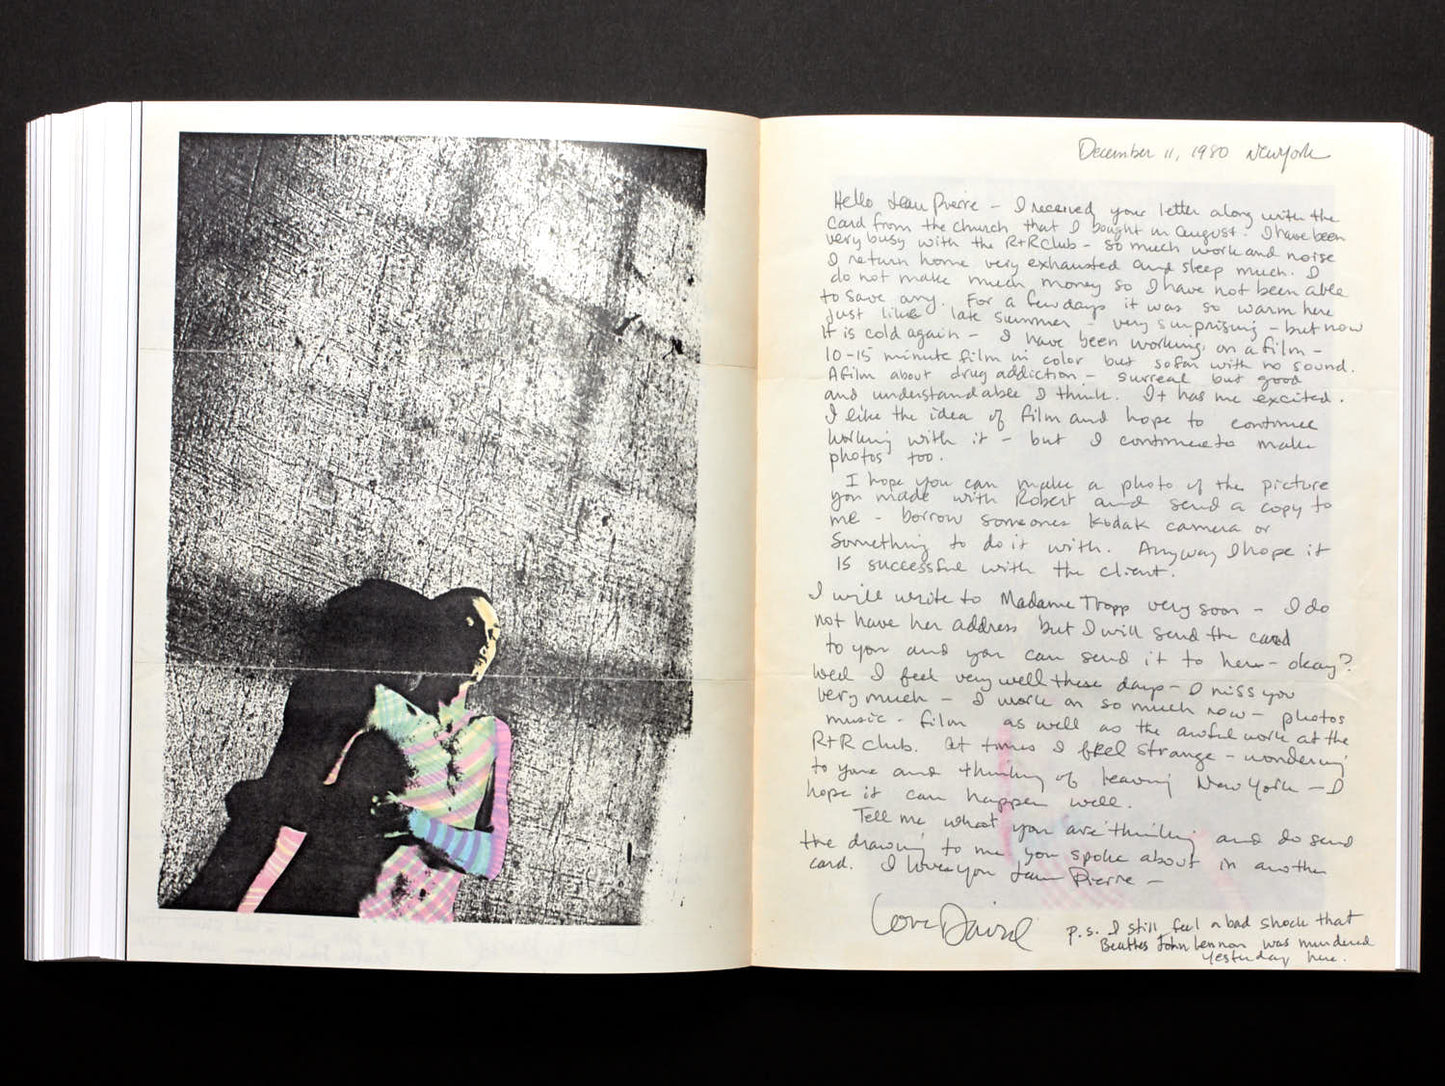 December 11, 1980 New York
Hello Jean Pierre – I received your letter along with the
card from the church that I bought in August. I have been
very busy with the R+R Club – so much work and noise
I return home very exhausted and sleep much. I
do not make much money so I have not been able
to save any. For a few days it was so warm here
just like late summer – very surprising – but now
it is cold again – I have been working on a film –
10–15 minute film in color but so far with no sound.
A film about drug addiction – surreal but good
and understandable I think. It has me excited.
I like the idea of film and hope to continue
working with it – but I continue to make
photos too.
I hope you can make a photo of the picture
you made with Robert and send a copy to
me – borrow someones Kodak camera or
something to do it with. Anyway I hope it
is successful with the client.
I will write to Madame Tropp very soon – I do
not have her address but I will send the card
to you and you can send it to her – okay?
Well I feel very well these days – I miss you
very much – I work on so much now – photos
music – film as well as the awful work at the
R+R club. At times I feel strange – wondering
to you and thinking of leaving New York – I
hope it can happen well.
Tell me what you are thinking and do send
the drawing to me you spoke about in another
card. I love you Jean Pierre –
Love David
p.s. I still feel a bad shock that
Beatles John Lennon was murdered
yesterday here.